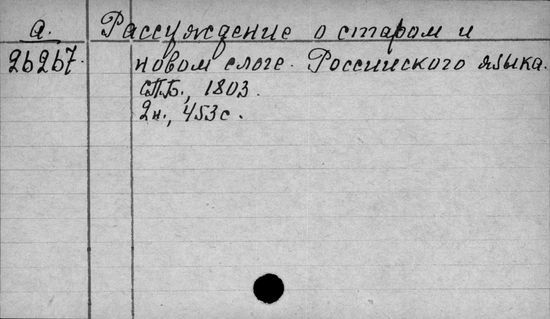 а. Рассуждение о старом и
26267. новом слоге Российского языка.
СПБ., 1803.
2н., 453с.